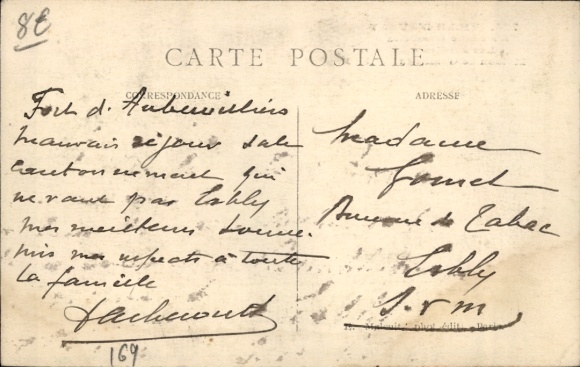 8€
CARTE POSTALE
CORRESPONDANCE
ADRESSE
Fort d'Aubervilliers
mauvais séjour sale
cantonnement qui
ne vaut pas Esbly
mes meilleurs souve-
nirs mes respects à toute
la famille
169
Madame
Bureau de Tabac
Esbly
S. & M.
phot. édit., Paris